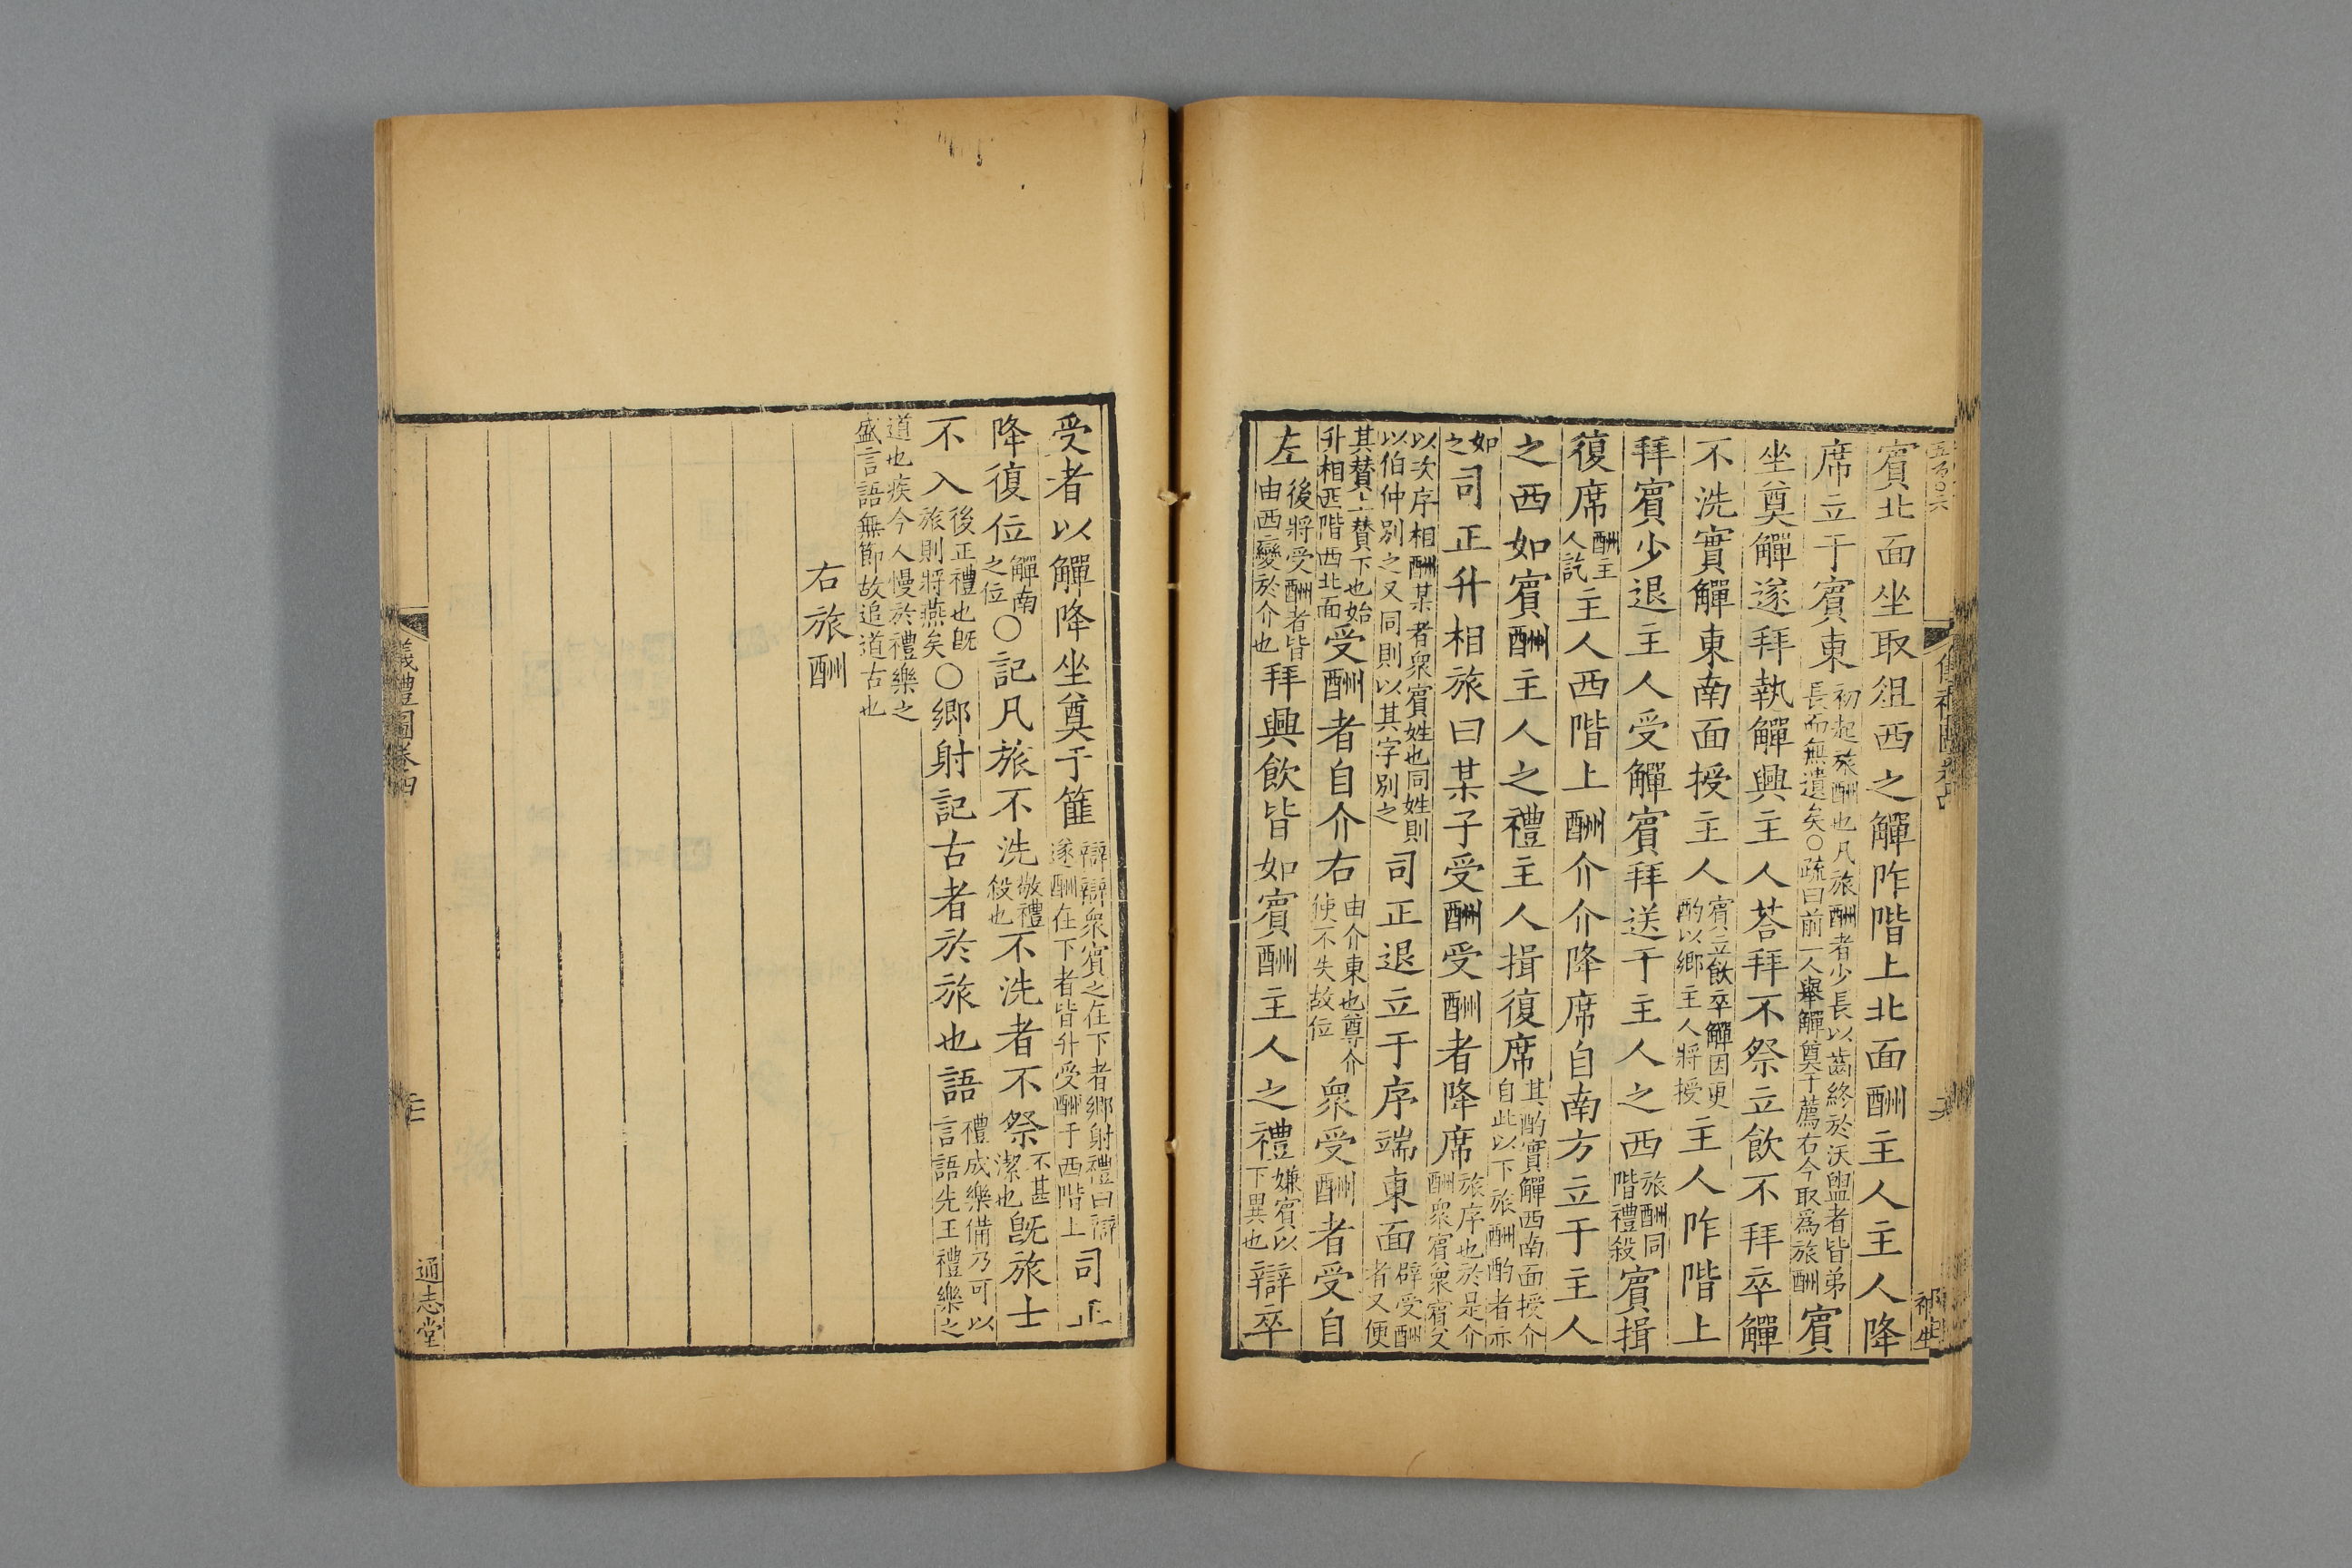 賓北面坐取俎西之觶阼階上北面酬主人主人降
席立于賓東初起旅酬也凡旅酬者少長以齒終於沃盥者皆弟長而無遺矣○疏曰前一人舉觶奠于薦右今取爲旅酬賓
坐奠觶遂拜執觶興主人荅拜不祭立飲不拜卒觶
不洗實觶東南面授主人賓立飲卒觶因更酌以鄉主人將授主人阼階上
拜賓少退主人受觶賓拜送于主人之西旅酬同階禮殺賓揖
復席酬主人訖主人西階上酬介介降席自南方立于主人
之西如賓酬主人之禮主人揖復席其酌實觶西南面授介自此以下旅酬酌者亦
如之司正升相旅曰某子受酬受酬者降席旅序也於是介酬衆賓衆賓又
以次序相酬某者衆賓姓也同姓則以伯仲別之又同則以其字別之司正退立于序端東面辟受酬者又便
其贊上贊下也始升相西階西北面受酬者自介右由介東也尊介使不失故位衆受酬者受自
左後將受酬者皆由西變於介也拜興飲皆如賓酬主人之禮嫌賓以下異也辯卒
受者以觶降坐奠于篚辯辯衆賓之在下者鄉射禮曰辯遂酬在下者皆升受酬于西階上司正
降復位觶南之位○記凡旅不洗敬禮殺也不洗者不祭不甚潔也旣旅士
不入後正禮也旣旅則將燕矣○鄉射記古者於旅也語禮成樂備乃可以言語先王禮樂之
道也疾今人慢於禮樂之盛言語無節故追道古也
右旅酬
儀禮圖卷四
通志堂